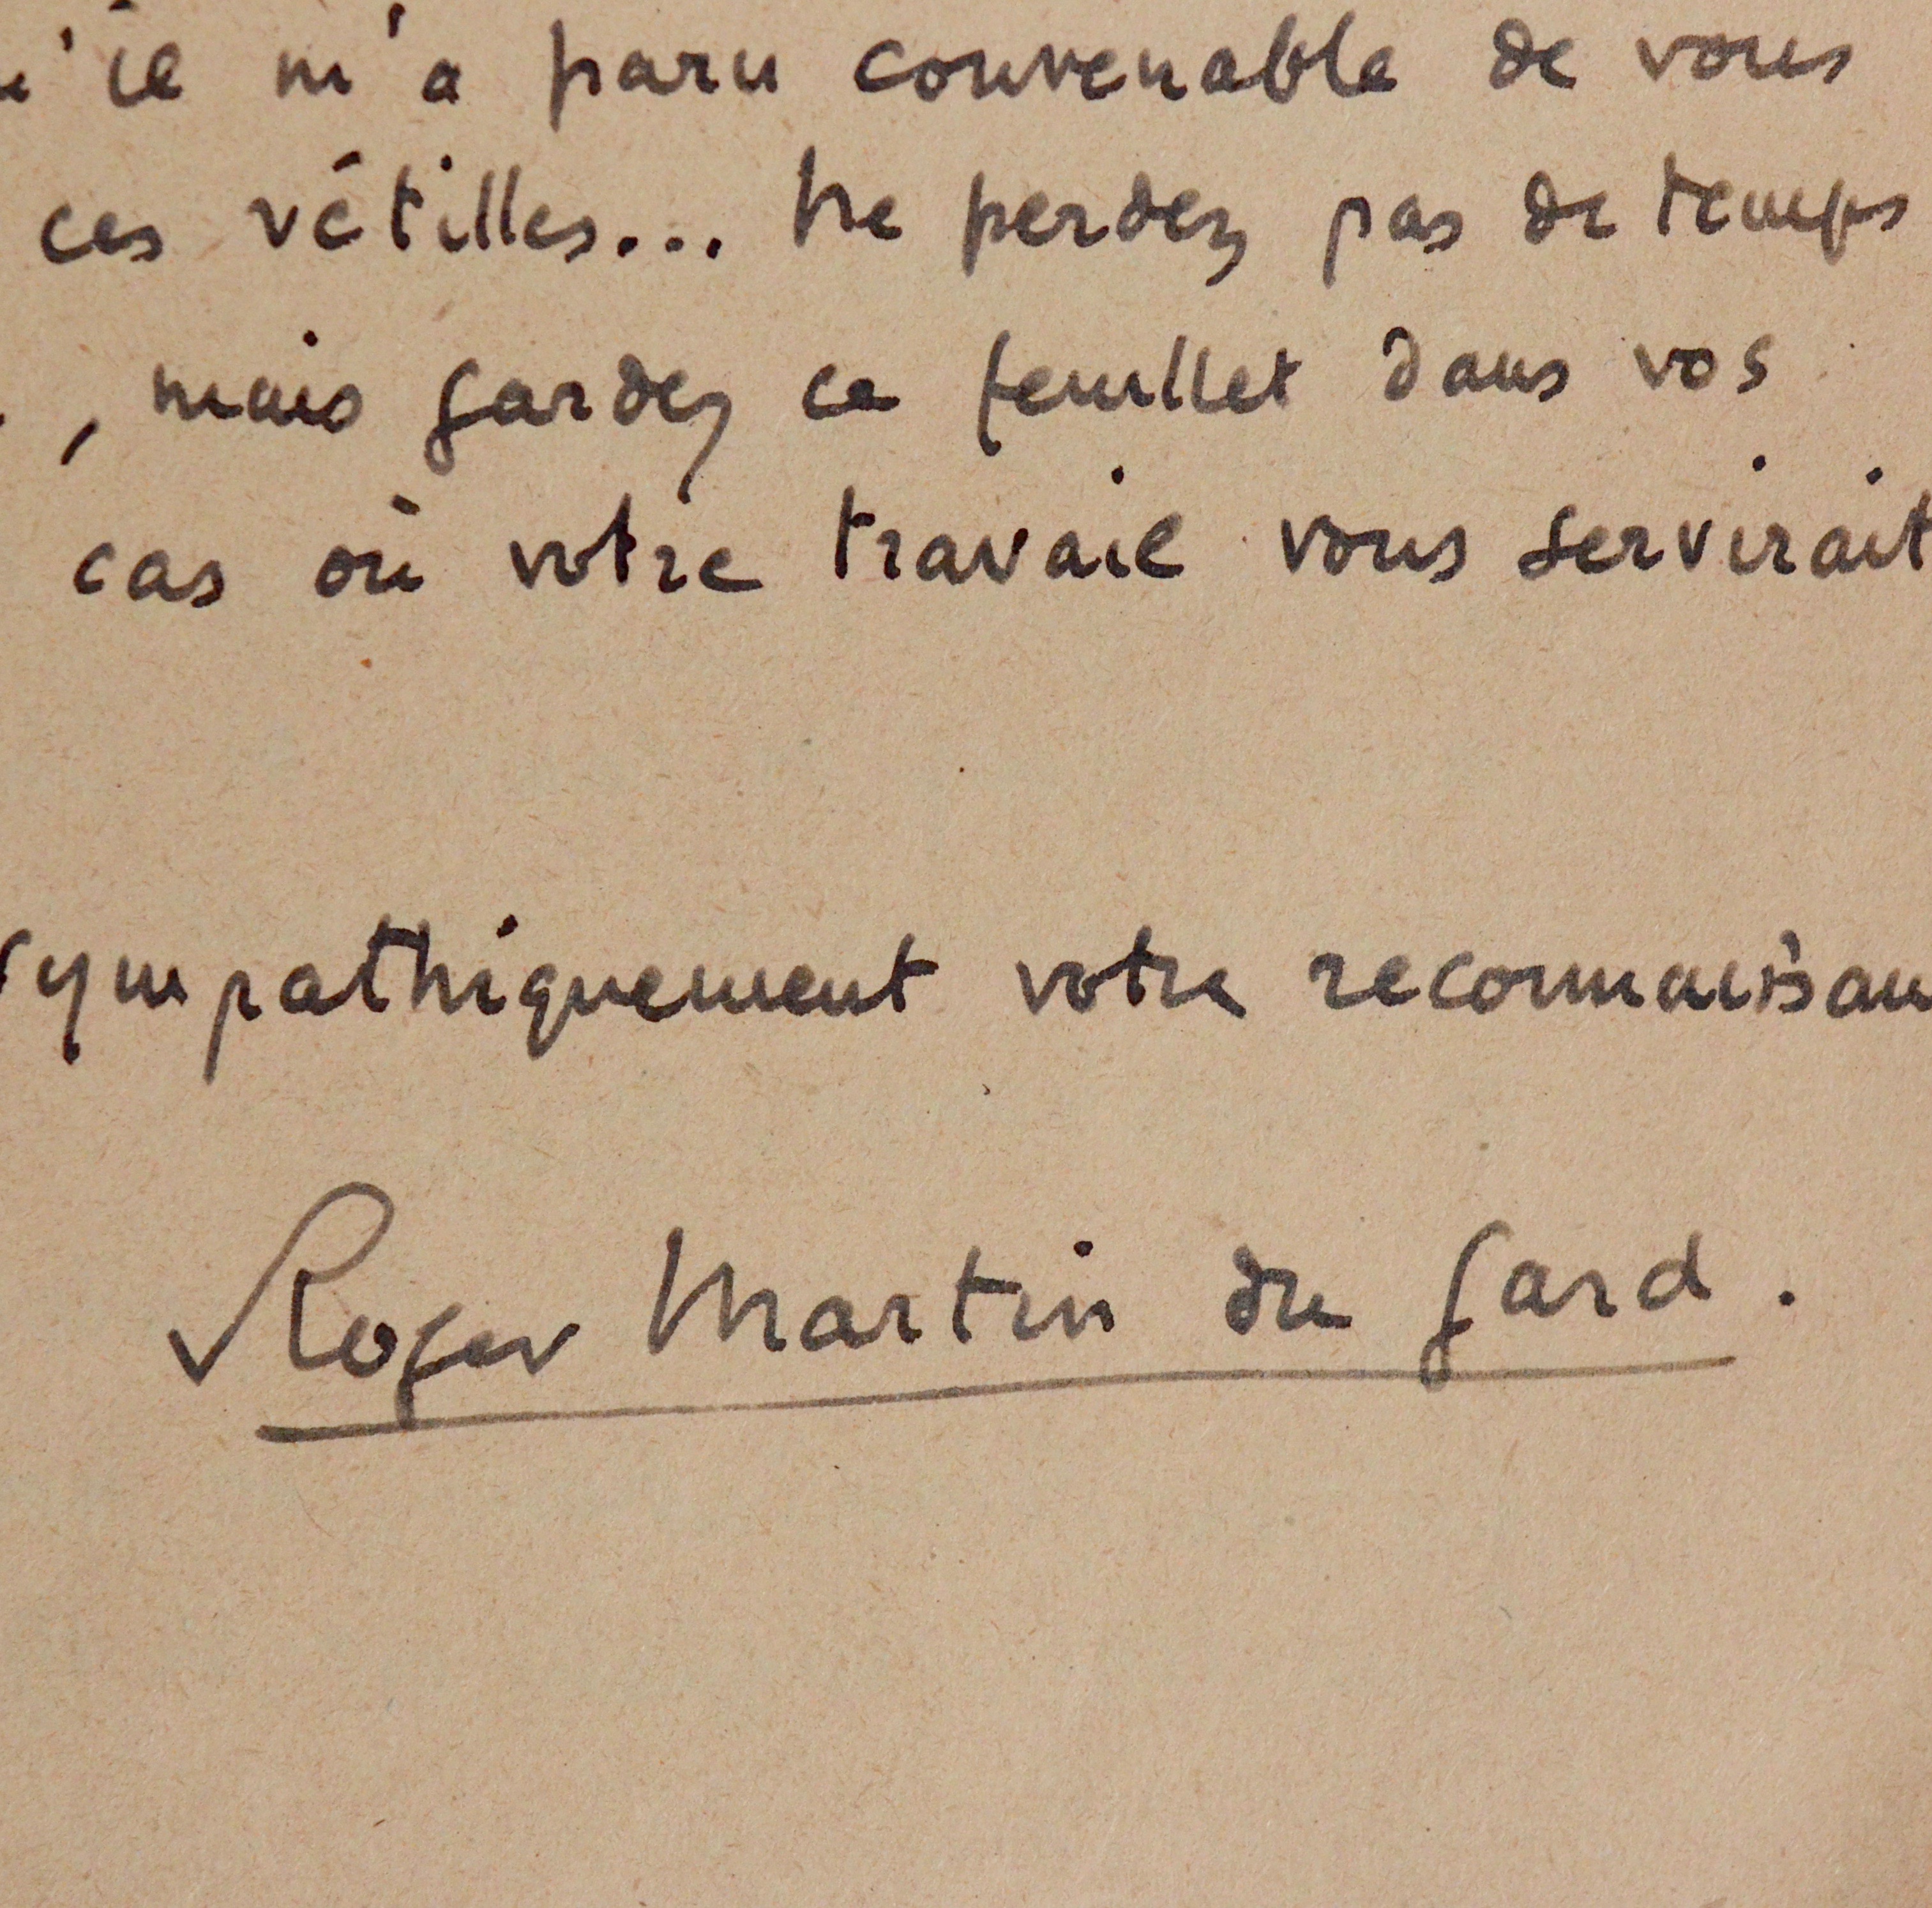 u'il m'a paru convenable de vous
ces vétilles... Ne perdez pas de temps
, mais gardez ce feuillet dans vos
cas où votre travail vous servirait
sympathiquement votre reconnaissan
Roger Martin du Gard.